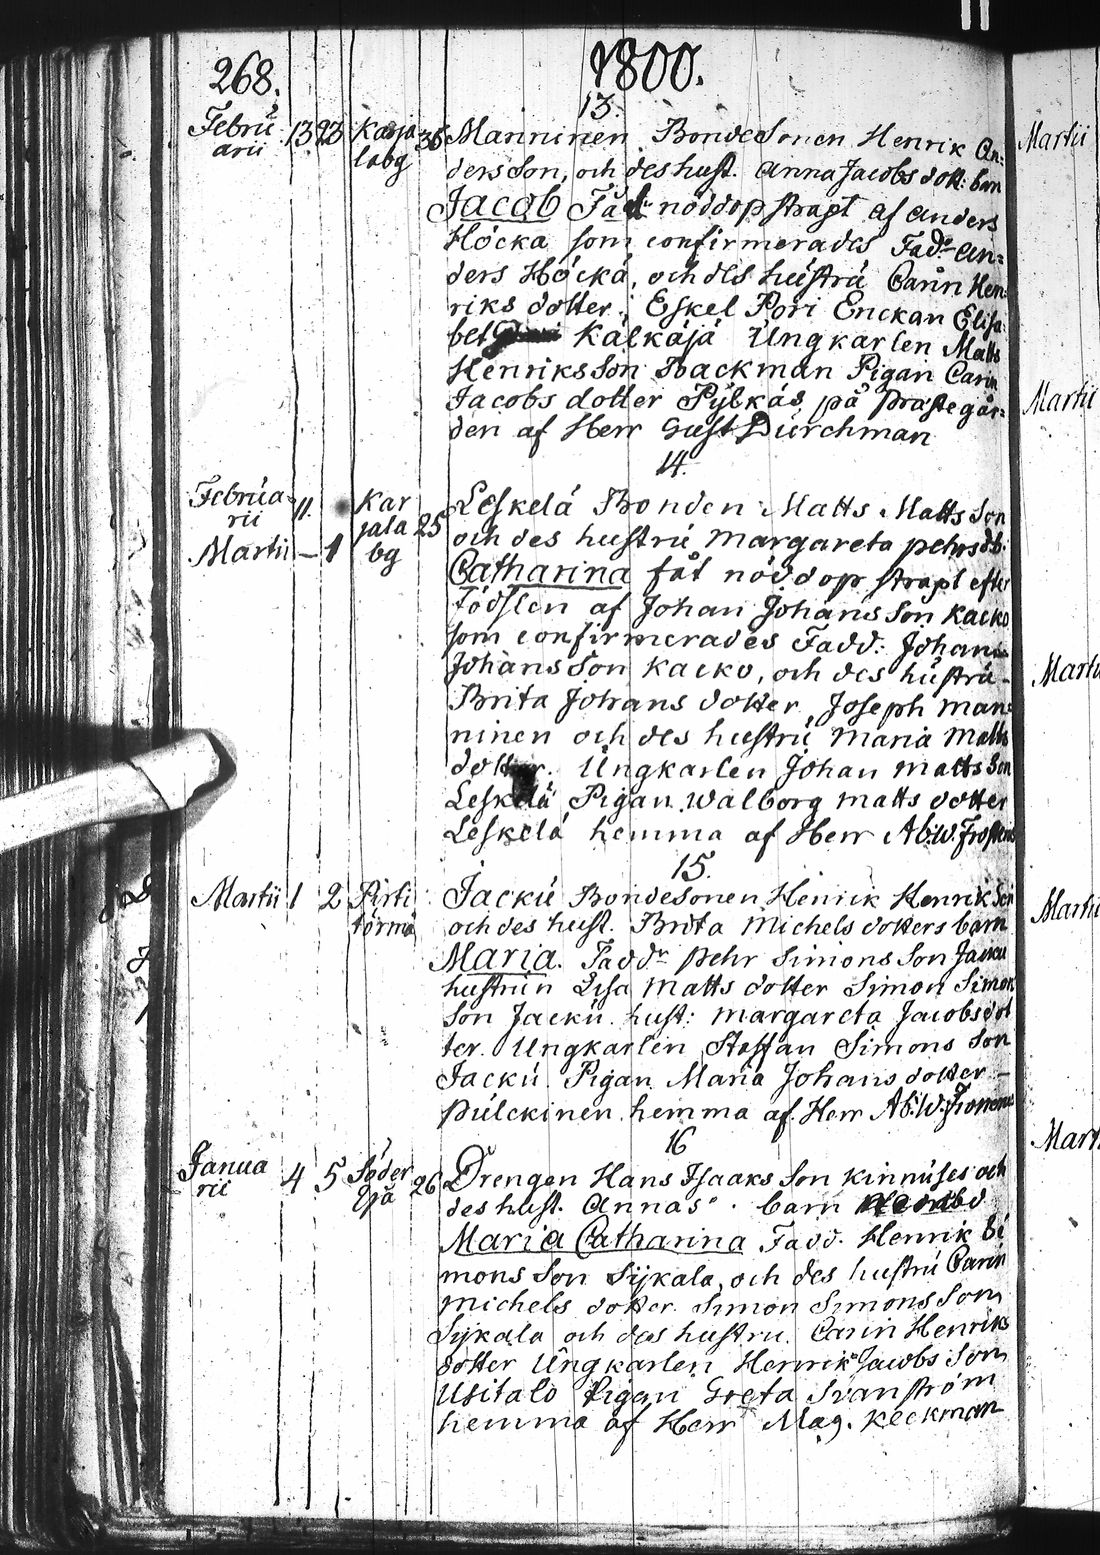 268.
1800.
13.
Febru
arii
13 23
Karja
labg
36
Manninen Bonde Sonen Henrik An:
ders Son, och des hust. Anna Jacobs dott: barn
Jacob nöddop strapt af Anders
Höcka som confirmerades Fadr An=
ders Höcka, och des hustru Carin Hen:
riks dotter. Eskel Pori Enckan Elisa:
bet Kälkäjä Ungkarlen Matts
Henriks Son Backman Pigan Carin
Jacobs dotter Pylkäs på Prästegår:
den af Herr Gust Durchman
14.
Februa=
rii
11.
Martii – 1
Kar
jala
bg
25
Leskelä Bonden Matts Matts Son
och des hustru Margareta Pehrs dt.
Catharina fåt nöddop strapt efter
födslen af Johan Johans Son Kacko
som confirmerades Fadd: Johan
Johans Son Kacko, och des hustru
Brita Johans dotter, Joseph Man=
ninen och des hustru Maria Matts
dotter. Ungkarlen Johan Matts Son
Leskelä Pigan Walborg Matts dotter
Leskelä hemma af Herr Ab:W. Frosterus
15.
Martii 1 2
Pirti
törmä
Jacku Bonde Sonen Henrik Henrik Son
och des hust. Brita Michels dotters barn
Maria. Faddr Pehr Simons Son Jacku
hustrun Lisa Matts dotter Simon Simon
Son Jacku hust: Margareta Jacobs dot
ter. Ungkarlen Staffan Simons Son
Jacku. Pigan Maria Johans dotter –
Pulckinen hemma af Herr Ab:W:
16
Janua
rii
4 5
Söder
Eja
26
Drengen Hans Isaaks Son Kinnuses och
des hust. Annas barn
Maria Catharina Fadd. Henrik Si
mons Son Sijkala, och des hustru Carin
Michels dotter Simon Simons Son
Sijkala och des hustru. Carin Henriks
dotter Ungkarlen Henrik Jacobs Son
Usitalo Pigan Greta Svanström
hemma af Herr Mag. Keckman
Martii
Martii
Martii
Martii
Mart